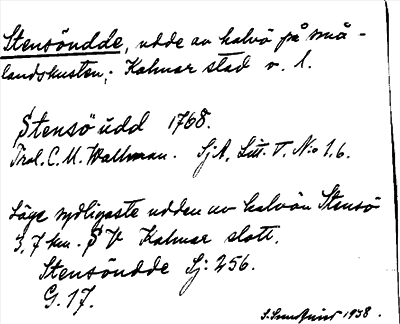 Stensöudde, udde av halvö på små-
landskusten; Kalmar stad v. l.
Stensö udd 1768.
Prol. C. M. Wallman. SjA, Litt. T. N:o 1, 6.
Läge sydligaste udden av halvön Stensö
3,7 km. SV Kalmar slott.
Stensöudde Sj: 256.
G. 17.
1938.